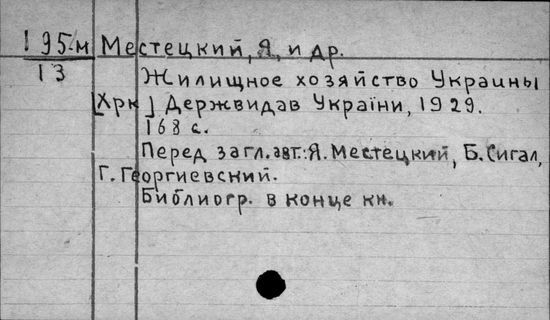 195-м Местецкий, Я. и др.
13
Жилищное хозяйство Украины
[Хрк] Держвидав України, 1929.
168 с.
Перед загл. авт.: Я. Местецкий, Б. Сигал,
Г. Георгиевский.
Библиогр. в конце кн.